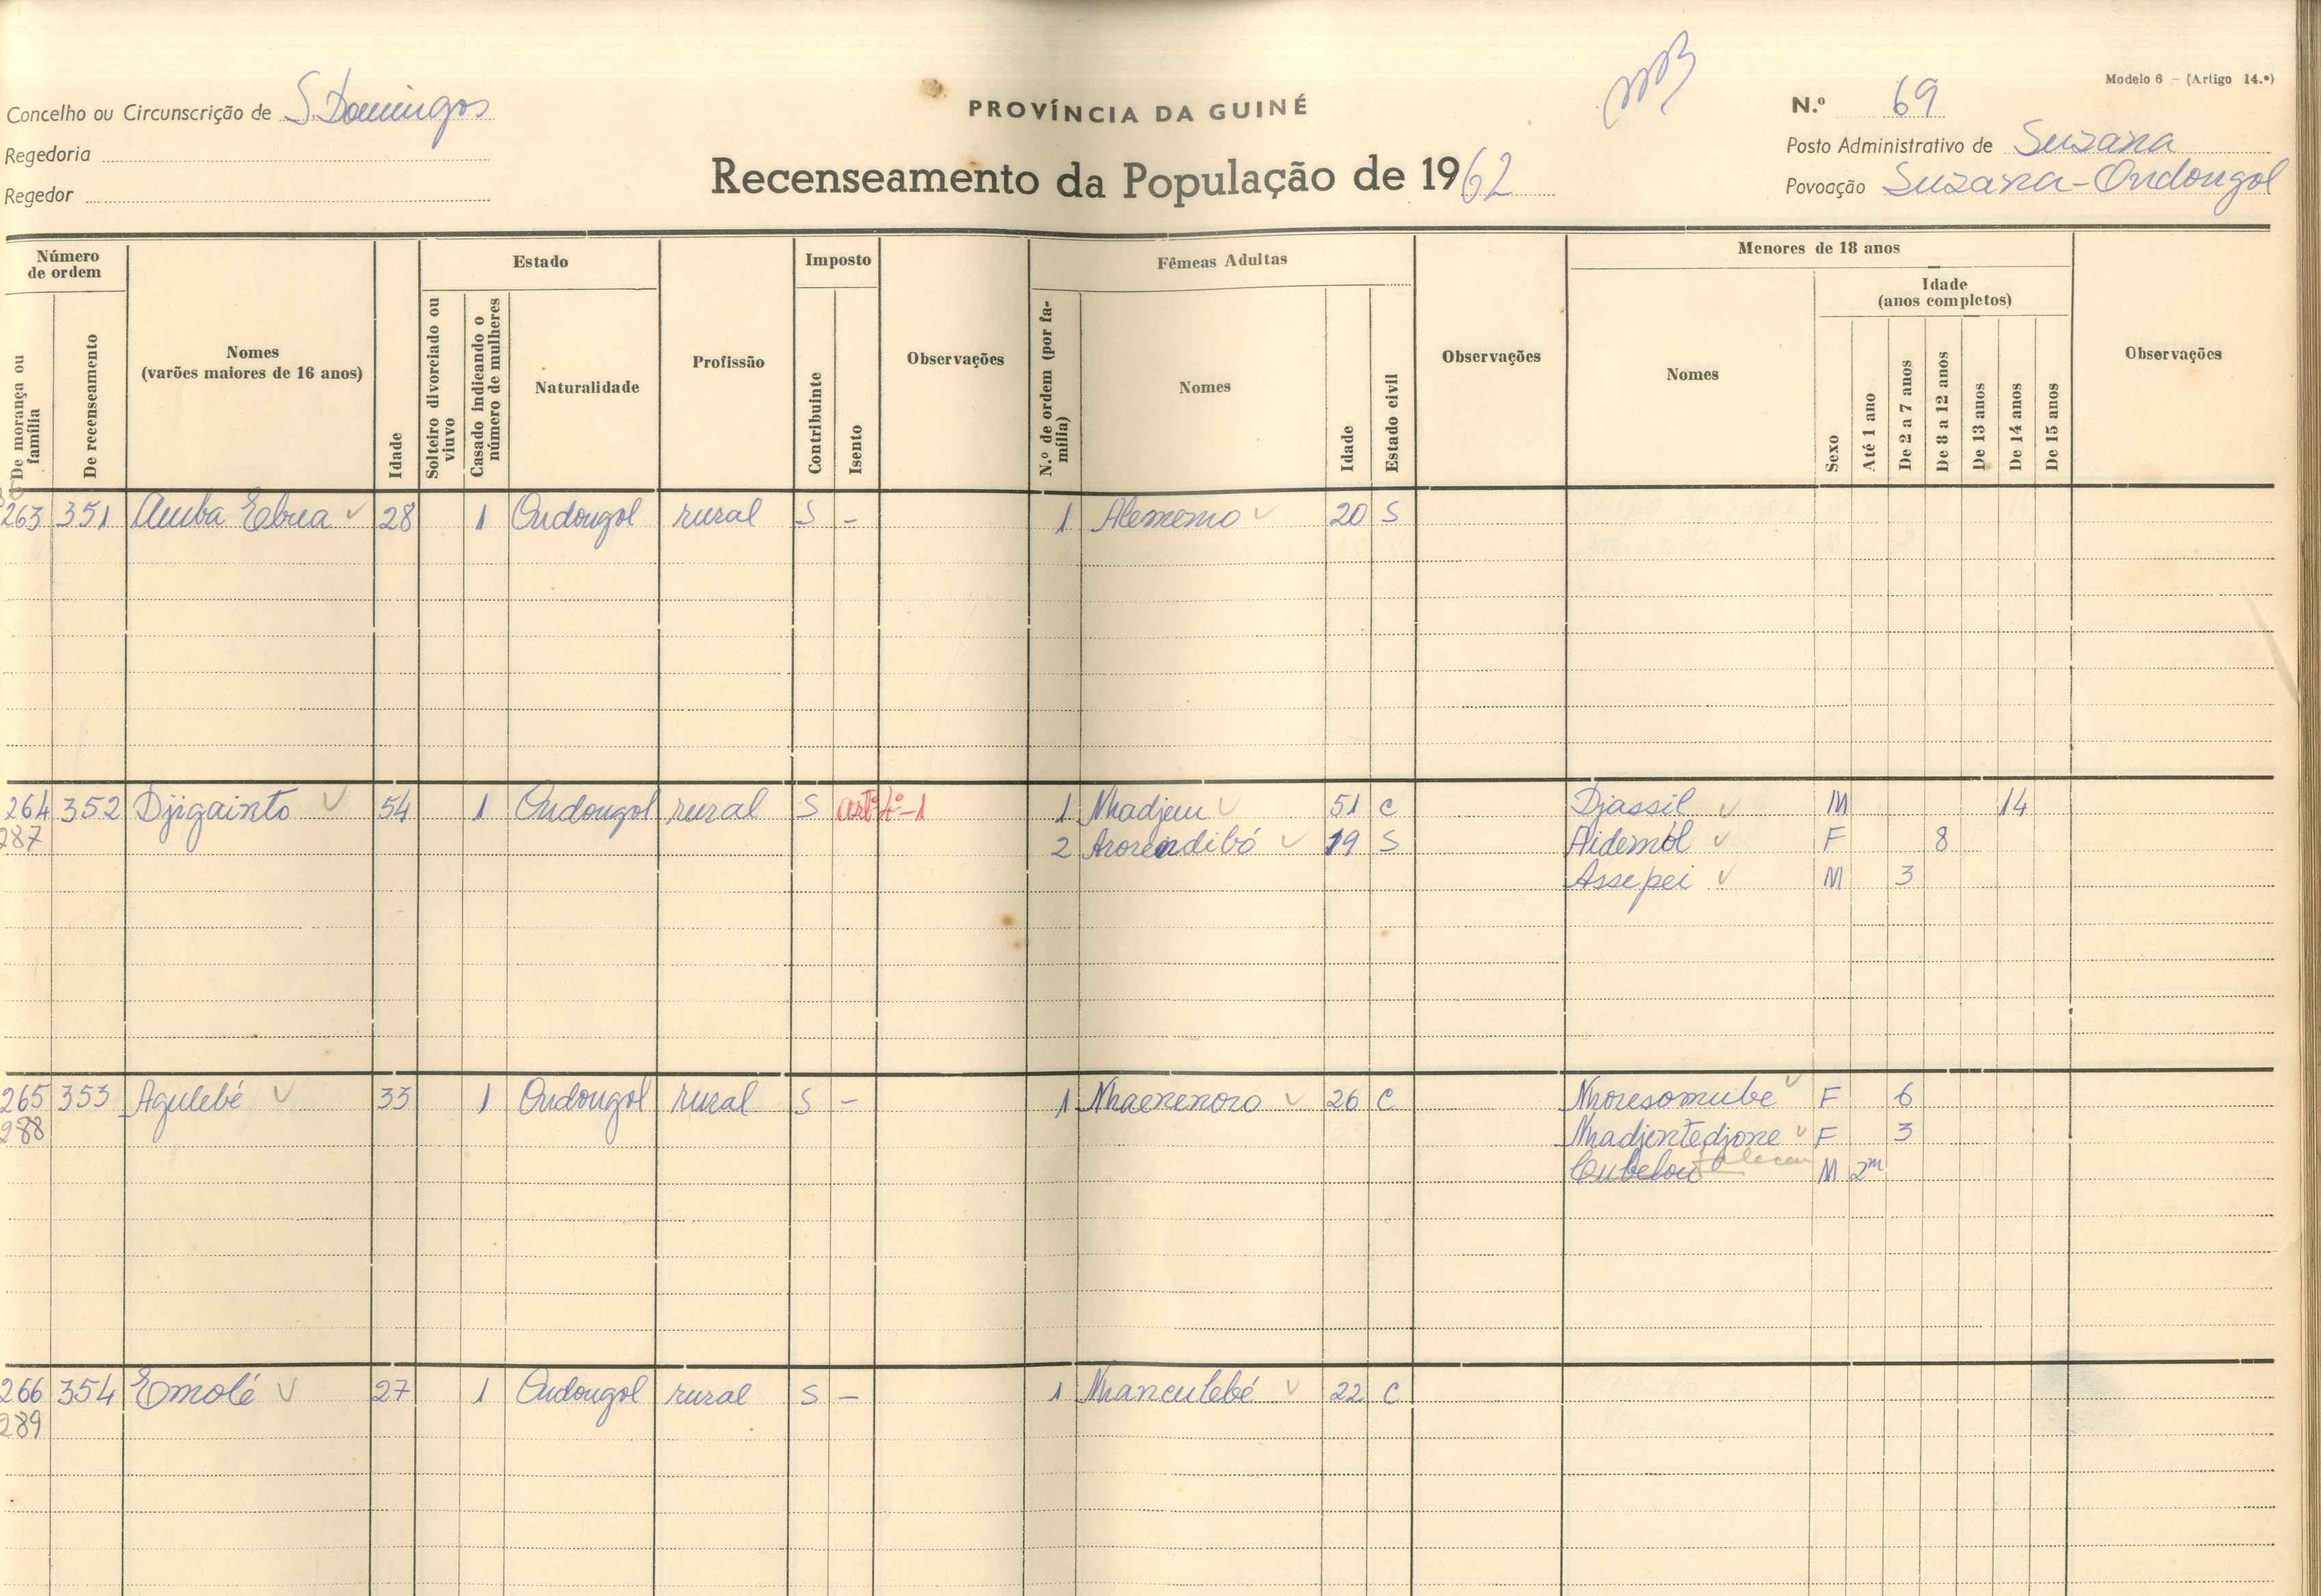 Modelo 6 - (Artigo 14.º)
Concelho ou Circunscrição de S. Domingos
PROVÍNCIA DA GUINÉ
N.º 69
Regedoria
Posto Administrativo de Suzana
Regedor
Recenseamento da População de 1962
Povoação Suzana-Ondongol
Número de ordem
De morança ou família
De recenseamento
Nomes
(varões maiores de 16 anos)
Idade
Estado
Solteiro divorciado ou viuvo
Casado indicando o número de mulheres
Naturalidade
Profissão
Imposto
Contribuinte
Isento
Observações
Fêmeas Adultas
N.º de ordem (por família)
Nomes
Idade
Estado civil
Observações
Menores de 18 anos
Nomes
Sexo
Idade
(anos completos)
Até 1 ano
De 2 a 7 anos
De 8 a 12 anos
De 13 anos
De 14 anos
De 15 anos
Observações
263 351 Amba Ebua 28 1 Ondongol rural S - 1 Alememo 20 S
264 352 Djigainto 54 1 Ondongol rural S artº 4º-1 1 Nhadjeu 51 C Djassil M 14
287 2 Arorendibó 19 S Aidemól F 8
Assepei M 3
265 353 Agulebé 33 1 Ondongol rural S - 1 Nhaenenoro 26 C Nhoresomube F 6
288 Nhadjentedjone F 3
Cubelou faleceu M 2m
266 354 Emolé 27 1 Ondongol rural S - 1 Nhanculebé 22 C
289